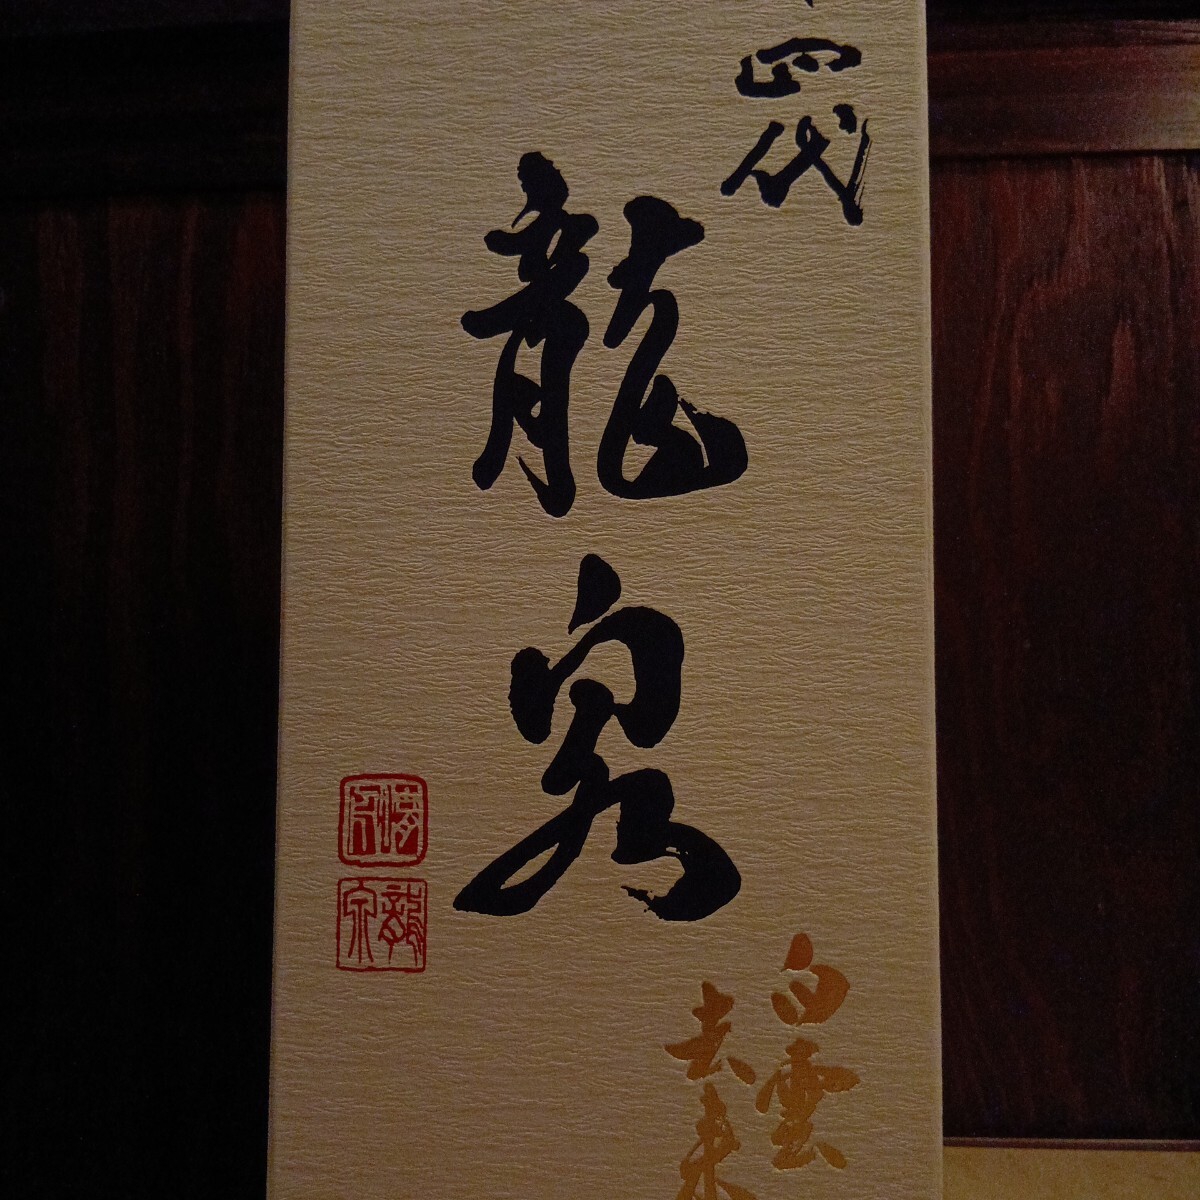 四代
龍泉
白雲
去来
龍泉